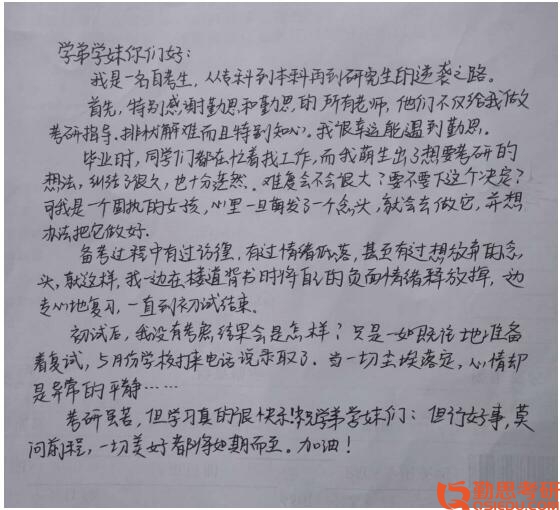 学弟学妹你们好：
我是一名自考生，从专科到本科再到研究生的逆袭之路。
首先，特别感谢勤思和勤思的所有老师，他们不仅给我做
考研指导、排忧解难而且特别知心。我很幸运能遇到勤思。
毕业时，同学们都在忙着找工作，而我萌生出了想要考研的
想法，纠结了很久，也十分迷茫。难度会不会很大？要不要下这个决定？
可我是一个固执的女孩，心里一旦萌发了一个念头，就会去做它，并想
办法把它做好。
备考过程中有过彷徨，有过情绪低落，甚至有过想放弃的念
头，就这样，我一边在楼道背书时将自己的负面情绪释放掉，一边
专心地复习，一直到初试结束。
初试后，我没有考虑结果会是怎样？只是一如既往地准备
着复试，5月份学校打来电话说录取了。当一切尘埃落定，心情却
是异常的平静……
考研虽苦，但学习真的很快乐！祝学弟学妹们：但行好事，莫
问前程，一切美好都将如期而至。加油！
勤思考研
QSIEDU.COM